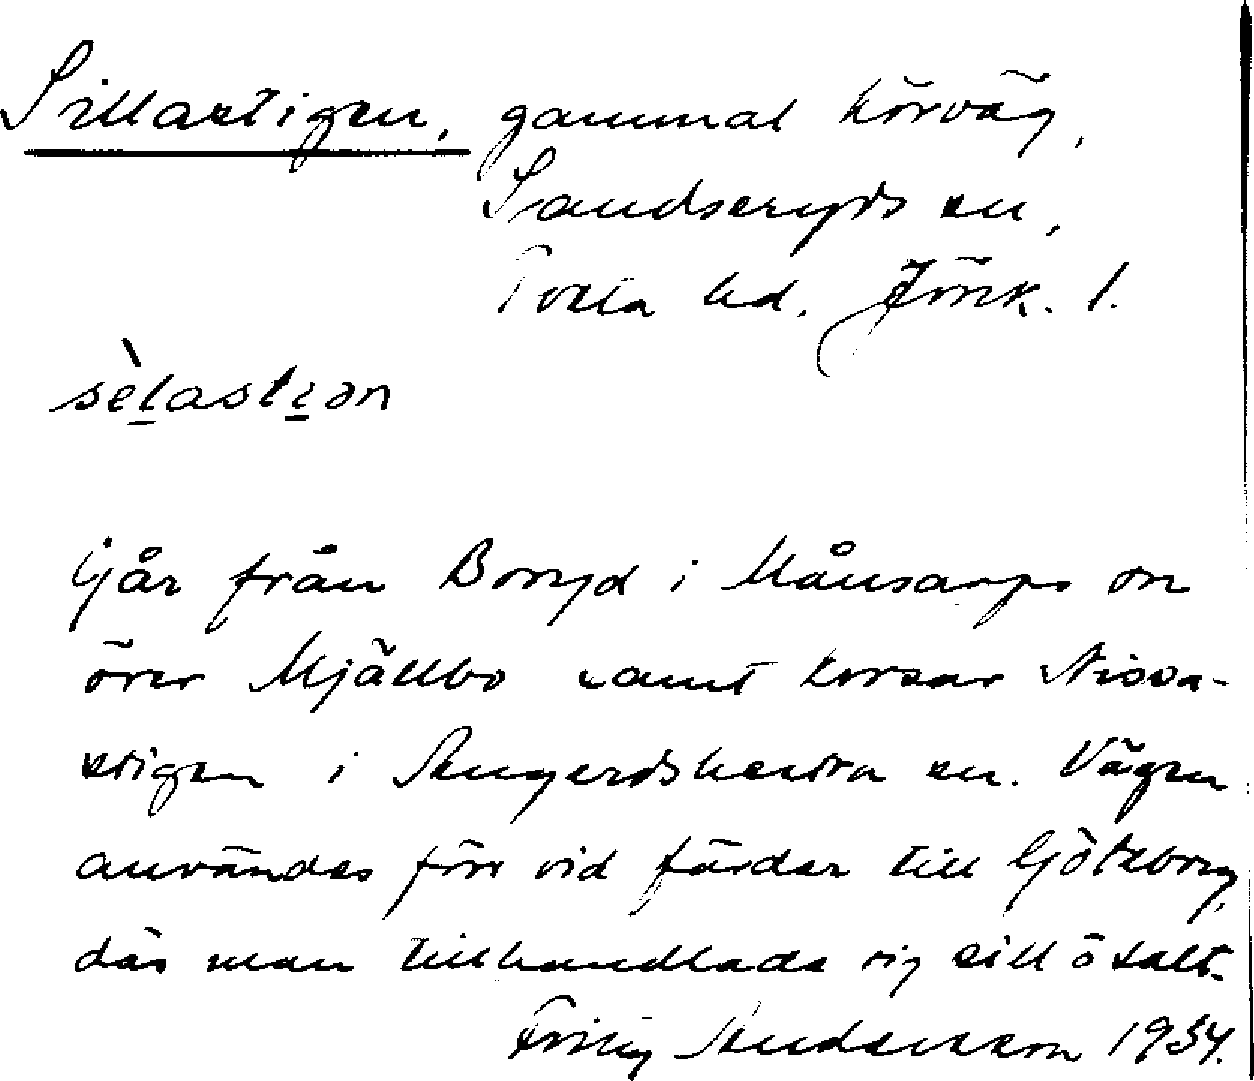 Sillastigen, gammal körväg,
Sandseryds sn,
Tveta hd. Jönk. l.
sèlastiən
Går från Boeryd i Månsarps sn
över Mjällbo samt korsar Nissa-
stigen i Angerdshestra sn. Vägen
användes förr vid färder till Göteborg,
där man tillhandlade sig sill o salt.
Andersson 1934.